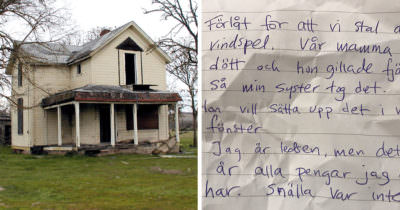 Förlåt för att vi stal
vindspel. Vår mamma
dött och hon gillade
Så min syster tog det.
vill sätta upp det i
fönster
Jag är ledsen, men det
är alla pengar jag
har. Snälla var